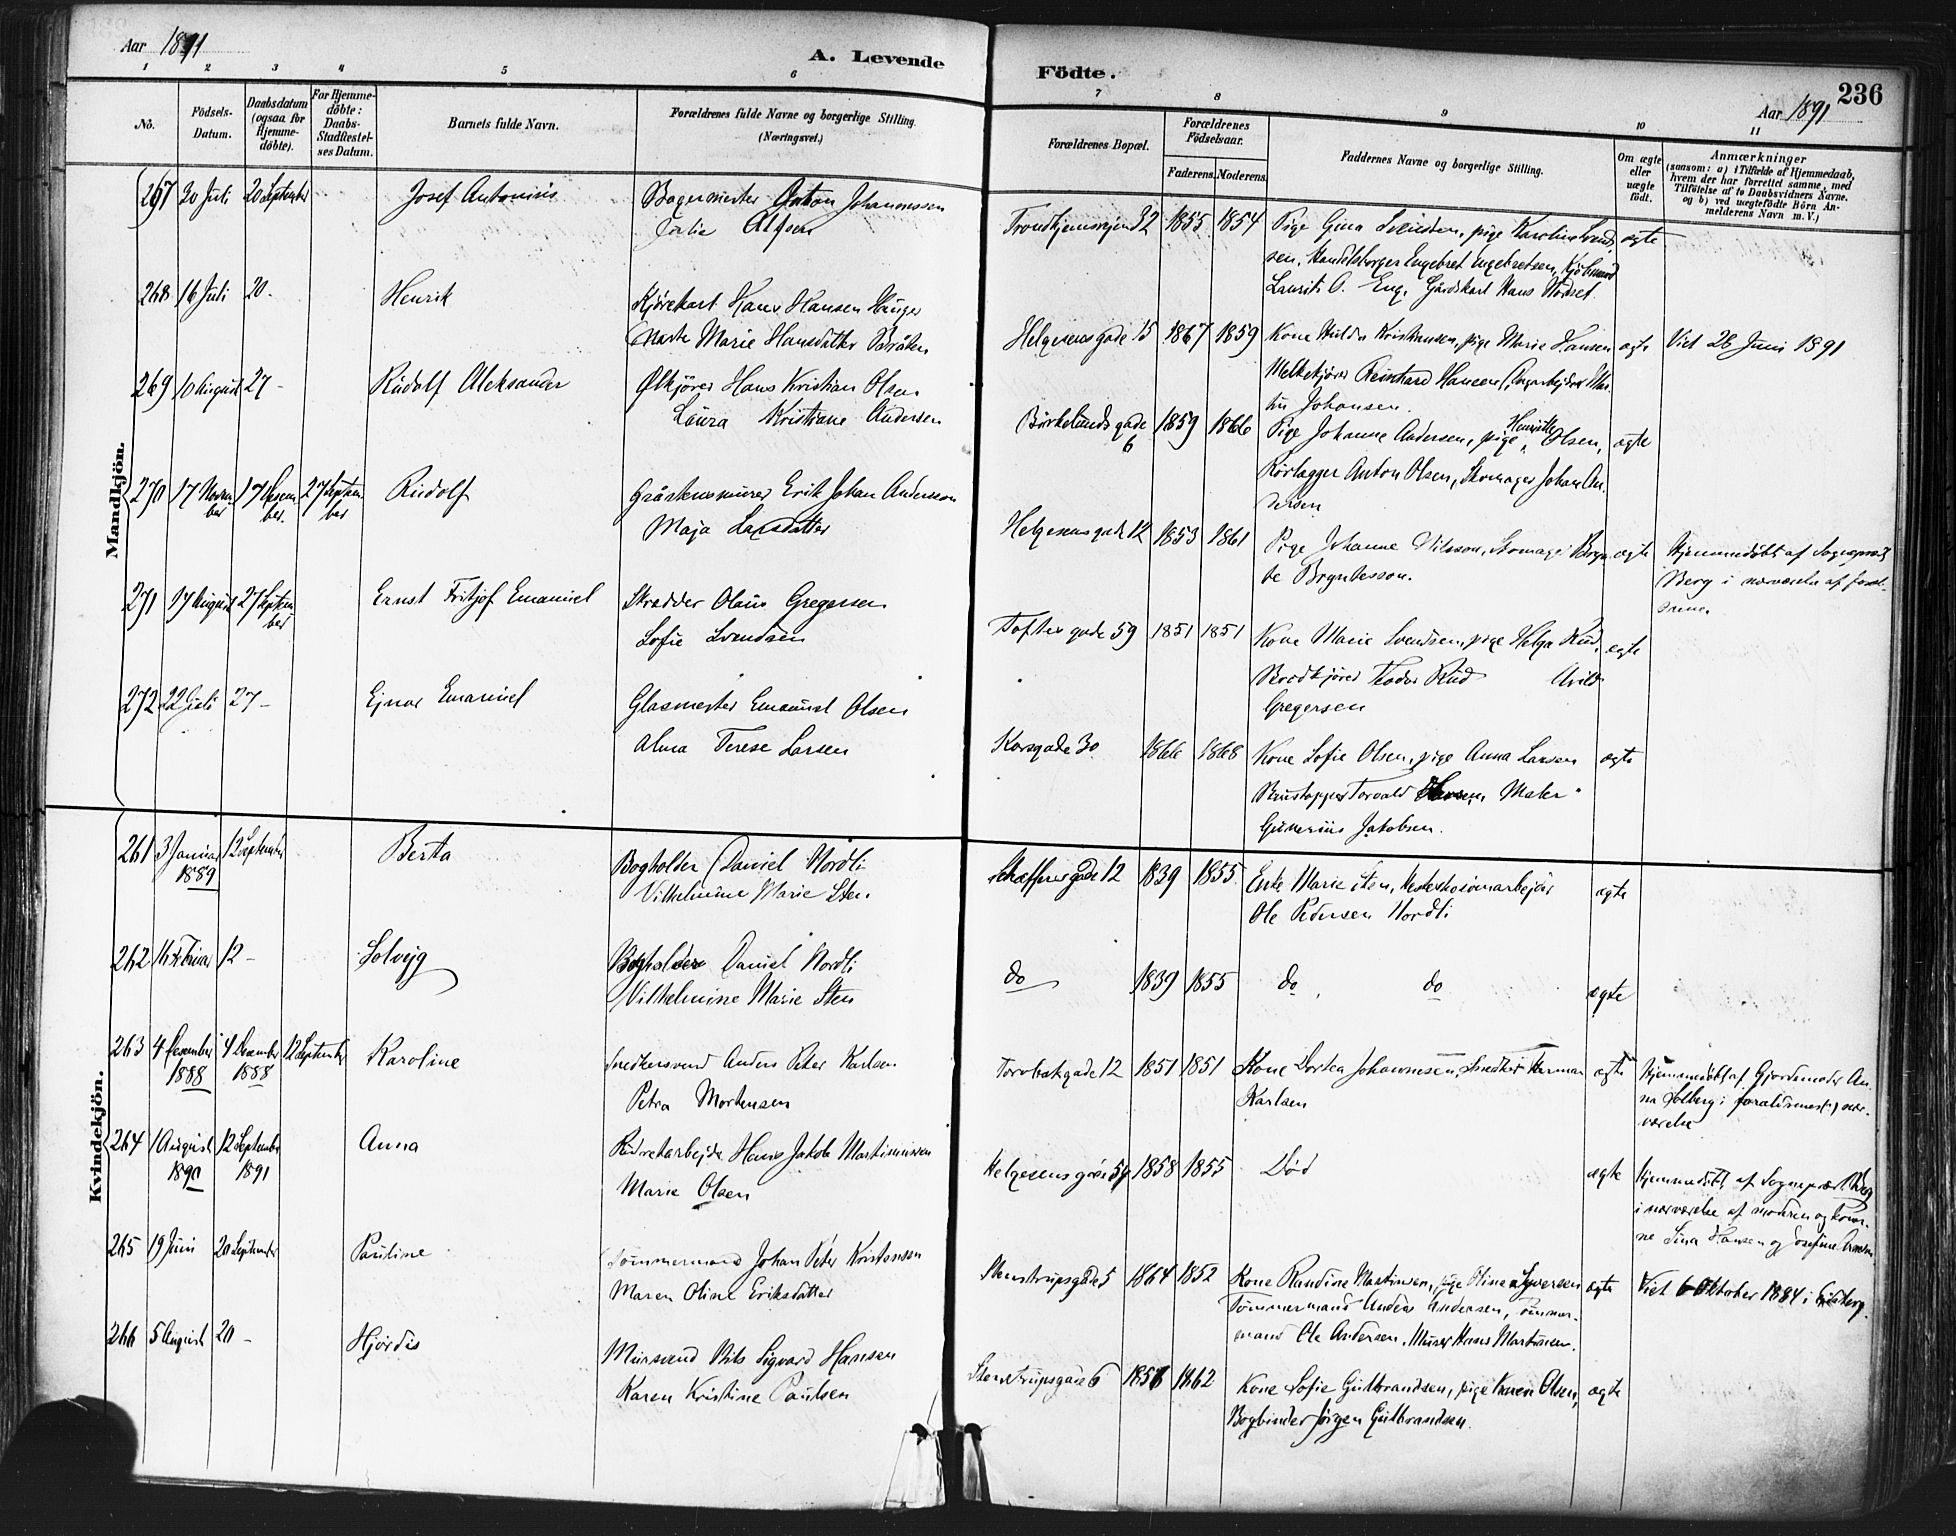 Aar 1891
A. Levende
Födte.
236
Aar 1891
1 2 3 4 5 6 7 8 9 10 11
No.
Födsels-
Datum.
Daabsdatum
(ogsaa for
Hjemme-
döbte).
For Hjemme-
döbte:
Daabs-
Stadfæstel-
ses Datum.
Barnets fulde Navn.
Forældrenes fulde Navne og borgerlige Stilling.
(Næringsvei.)
Forældrenes Bopæl.
Forældrenes
Födselsaar.
Faderens. Moderens.
Faddernes Navne og borgerlige Stilling.
Om ægte
eller
uægte
födt.
Anmærkninger
(saasom: a) i Tilfælde af Hjemmedaab,
hvem der har forrettet samme, med
Tilföielse af to Daabsvidners Navne.
og b) ved uegtefödte Börn An-
melderens Navn m. V.)
Mandkjön.
267 30 Juli 20 September Josef Antonius Bagermester Anton Johannessen
Julie Alfsen
Trondhjemsvejen 32 1855 1854 Pige Gina Svendsen, pige Karoline Svend-
sen, Handelsborger Engebret Engebretsen, Kjøbmand
Laurits O. Eng, Gårdskarl Hans Modset
ægte
268 16 Juli 20- Henrik Kjørekarl Hans Hansen Hauger
Marte Marie Hansdatter Bråten
Helgesensgade 15 1867 1859 Kone Hulda Kristiansen, pige Marie Hansen
Melkekjører Reinhard Hansen,
Johansen.
ægte Viet 28 Juni 1891
269 10 August 27- Rudolf Aleksander Ølkjører Hans Kristian Olsen
Laura Kristiane Andersen
Birkelundsgade
6
1859 1866 Pige Johanne Andersen, pige Henriette Olsen,
Rørlægger Anton Olsen, Skomager Johan An-
dersen
ægte
270 17 Novem-
ber
17 Desem-
ber.
27 Septem-
ber
Rudolf Gråstensmurer Erik Johan Andersson
Maja Larsdatter
Helgesensgade 12 1853 1861 Pige Johanne Nilsson, Skomager Bryn-
te Bryntesson.
ægte Hjemmedøbt af Sogneprest
Berg i nærværelse af foræl-
drene.
271 17 August 27 Septem-
ber
Ernst Fritjof Emanuel Skrædder Olaus Gregersen
Sofie Svendsen
Toftesgade 59 1851 1851 Kone Marie Svendsen, pige Helga Rud,
Brødkjører Teodor Rud Arild
Gregersen
ægte
272 22 Juli 27- Ejnar Emanuel Glasmester Emanuel Olsen
Alma Terese Larsen
Korsgade 30 1866 1868 Kone Sofie Olsen, pige Anna Larsen
Torvald Maler
Gunerius Jakobsen.
ægte
Kvindekjön.
261 3 Januar
1889
12 September Berta Bogholder Daniel Nordli
Vilhelmine Marie Sten
Schæffersgade 12 1839 1855 Enke Marie Sten, Hesteskosømarbejder
Ole Pedersen Nordli
ægte
262 16 Februar 12- Solvejg Bogholder Daniel Nordli
Vilhelmine Marie Sten
do 1839 1855 do do ægte
263 4 Desember
1888
4 Desember
1888
12 September Karoline Snedkersvend Anders Peter Karlsen
Petra Mortensen
Torvbakgade 12 1851 1851 Kone Dortea Johannesen, Snedker Herman
Karlsen
ægte Hjemmedøbt af Gjordemoder An-
na Solberg i forældrenes (:) nær-
værelse
264 1 August
1890
12 September
1891
Anna Hans Jakob Martinusen
Marie Olsen
Helgesensgade 54 1858 1855 Død ægte Hjemmedøbt af Sogneprest Berg
i nærværelse af moderen og kone-
ne Lina Hansen og Josefine
265 19 Juni 20 September Pauline Tømmermand Johan Peter Kristensen
Maren Oline Eriksdatter
Stenstrupsgade 5 1864 1852 Kone Randine Martinsen, pige Oline Syversen
Tømmermand Anders Andersen, Tømmer-
mand Ole Andersen, Murer Hans Martinsen.
ægte Viet 6 Oktober 1884 i Eidsberg.
266 5 August 20- Hjørdis Mursvend Nils Sigvard Hansen
Karen Kristine Paulsen
Stenstrupsgade 6 1856 1862 Kone Sofie Gulbrandsen, pige Karen Olsen,
Bogbinder Jørgen Gulbrandsen.
ægte